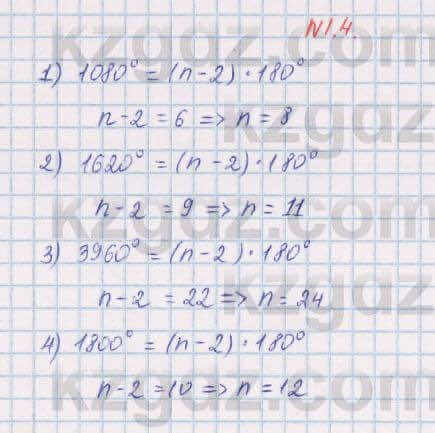 N1.4.
1) 1080° = (n-2)·180°
n-2 = 6 => n = 8
2) 1620° = (n-2)·180°
n-2 = 9 => n = 11
3) 3960° = (n-2)·180°
n-2 = 22 => n = 24
4) 1800° = (n-2)·180°
n-2 = 10 => n = 12